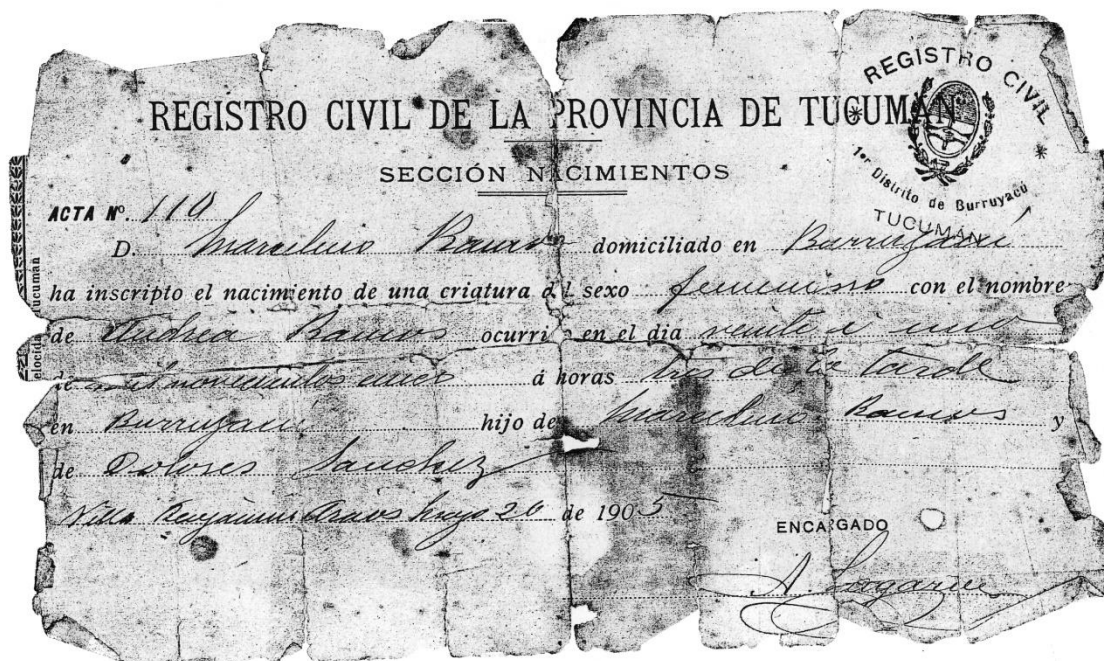 REGISTRO CIVIL
1er Distrito de Burruyacú
TUCUMÁN
REGISTRO CIVIL DE LA PROVINCIA DE TUCUMÁN
SECCIÓN NACIMIENTOS
ACTA Nº. 110
D. Marcelino Ramos domiciliado en Burruyacú
ha inscripto el nacimiento de una criatura del sexo femenino con el nombre
de Andrea Ramos ocurrido en el dia veinte i uno
de mil novecientos cinco á horas tres de la tarde
en Burruyacú hijo de Marcelino Ramos y
de Dolores Sanchez
Villa Benjamin Araoz Mayo 26 de 1905
ENCARGADO
Tucumán